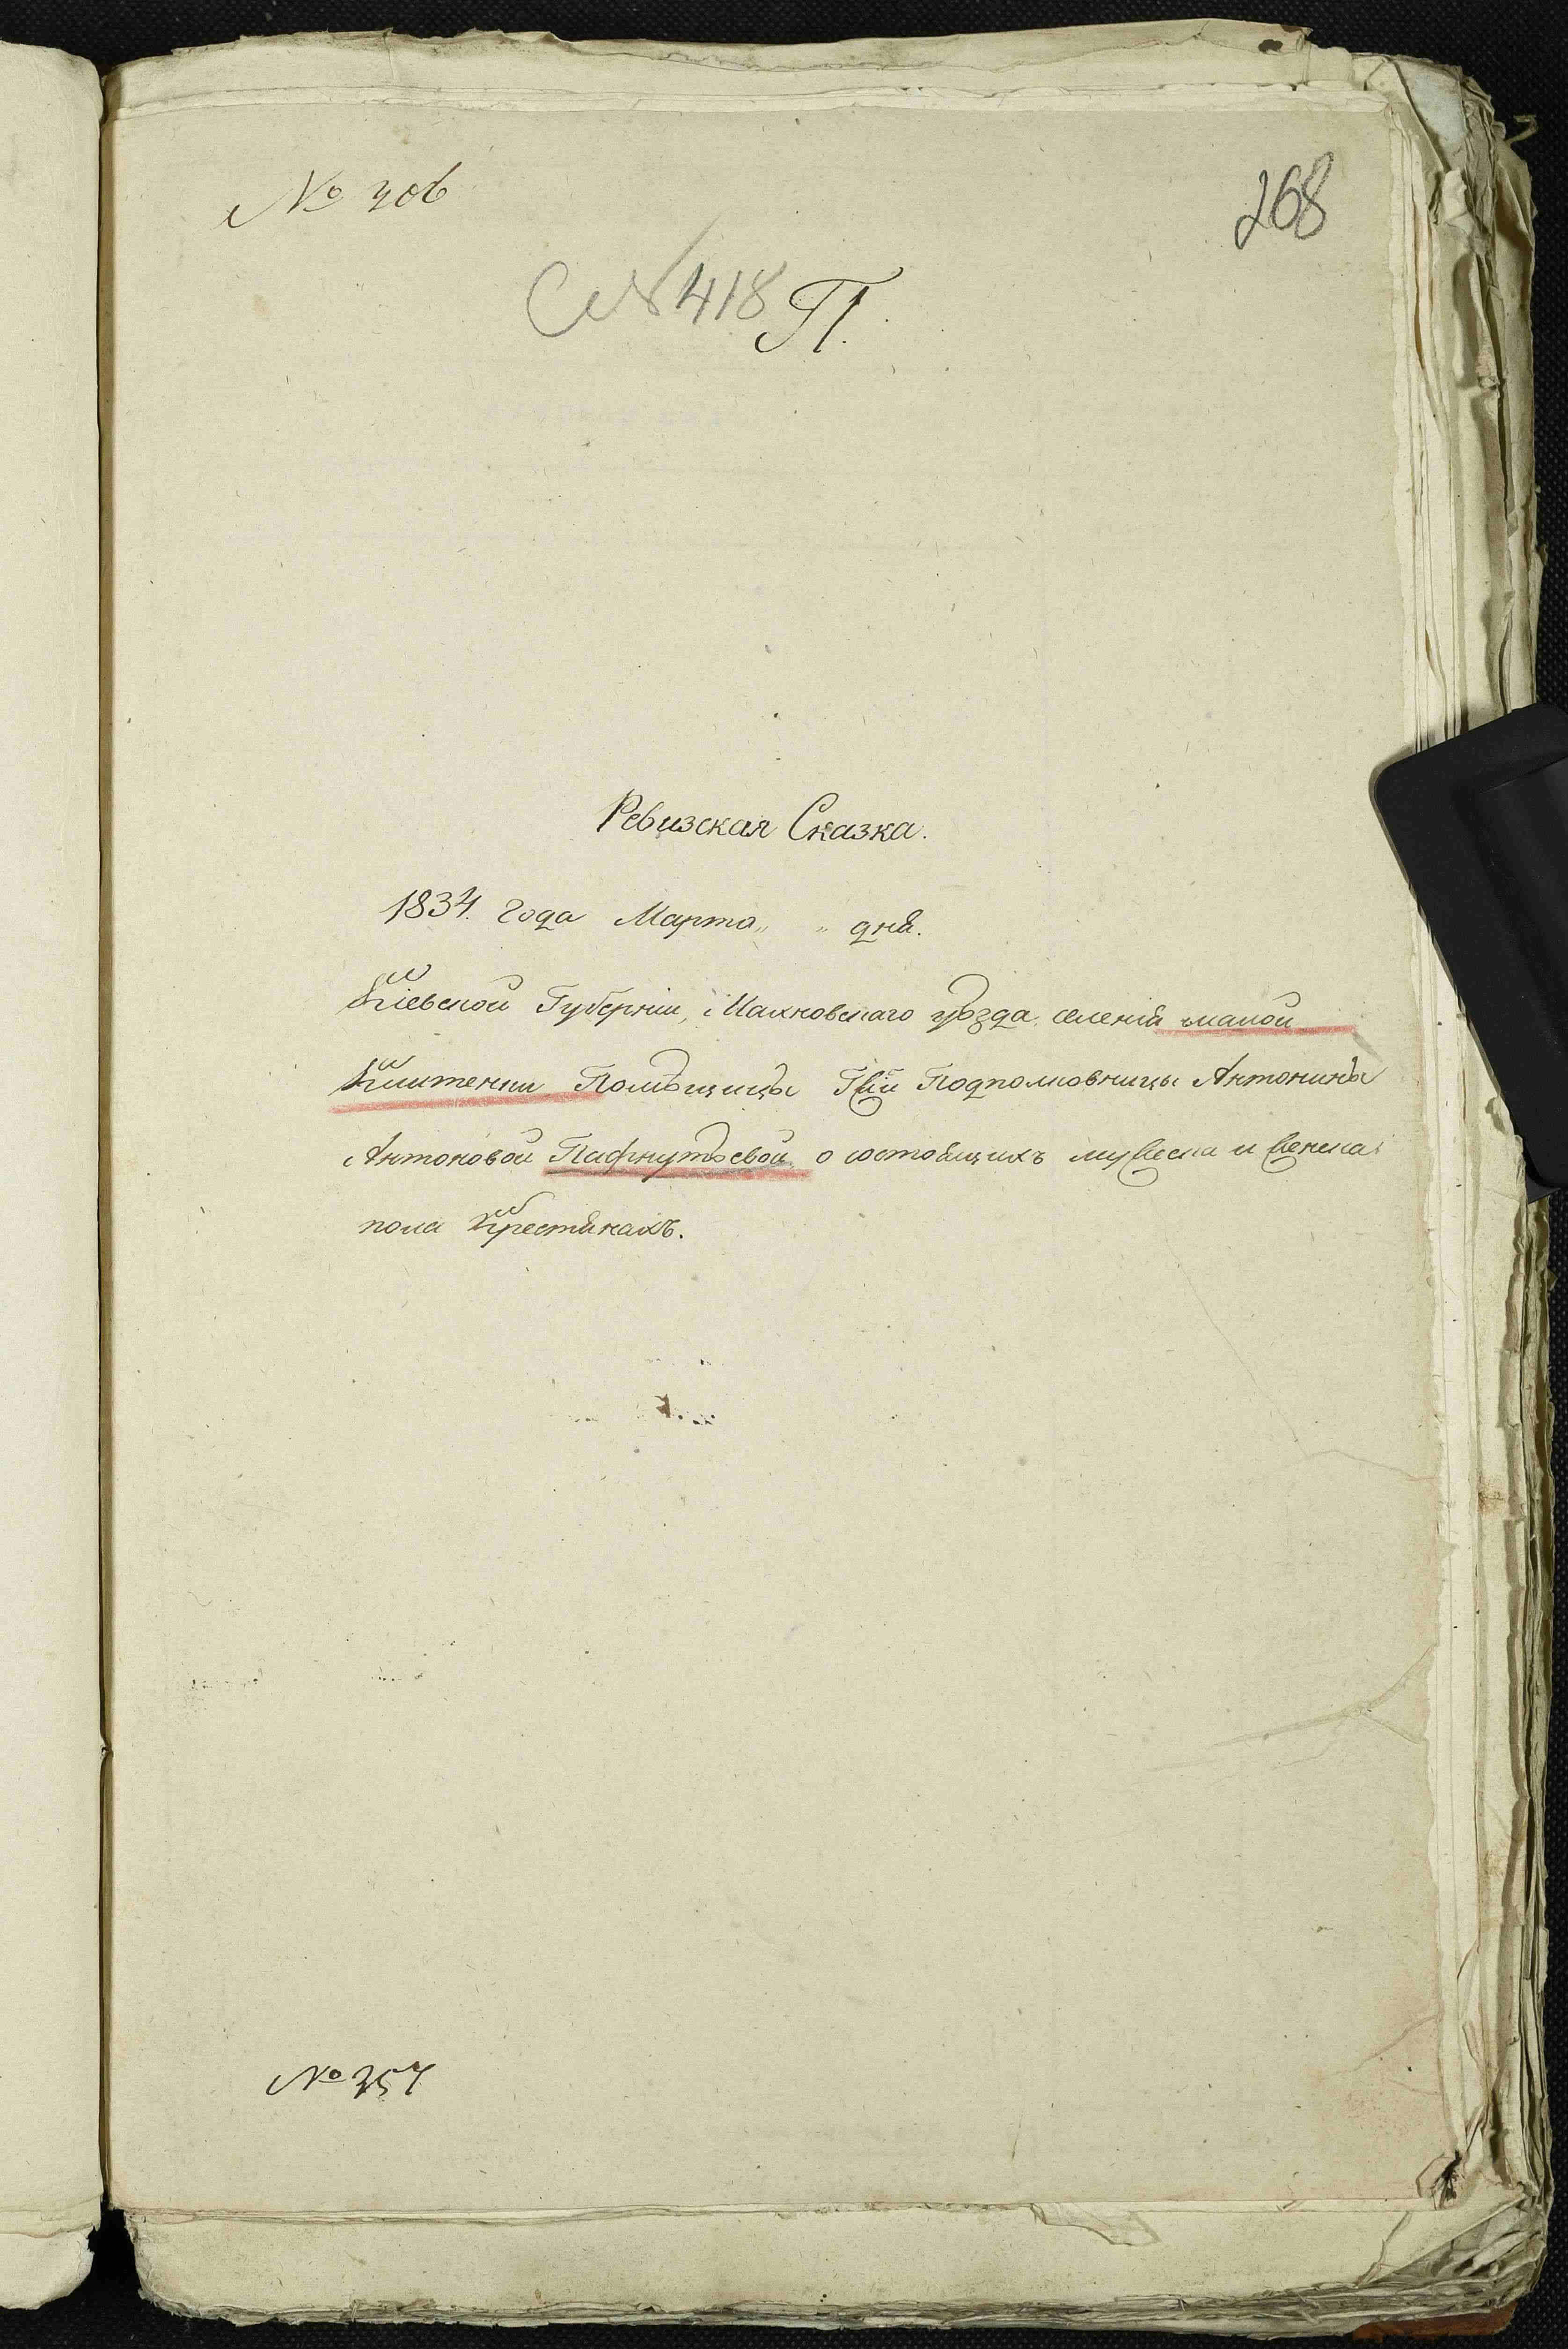 № 406
268
№ 418 П.
Ревизская Сказка.
1834. Года Марта „ „ дня.
Кіевской Губерніи, Махновскаго уѣзда селенія малой
Клитенки Помѣщицы Подполковницы Антонины
Антоновой Пафнутьевой о состоящихъ мужеска и женска
пола Крестянахъ.
№ 357